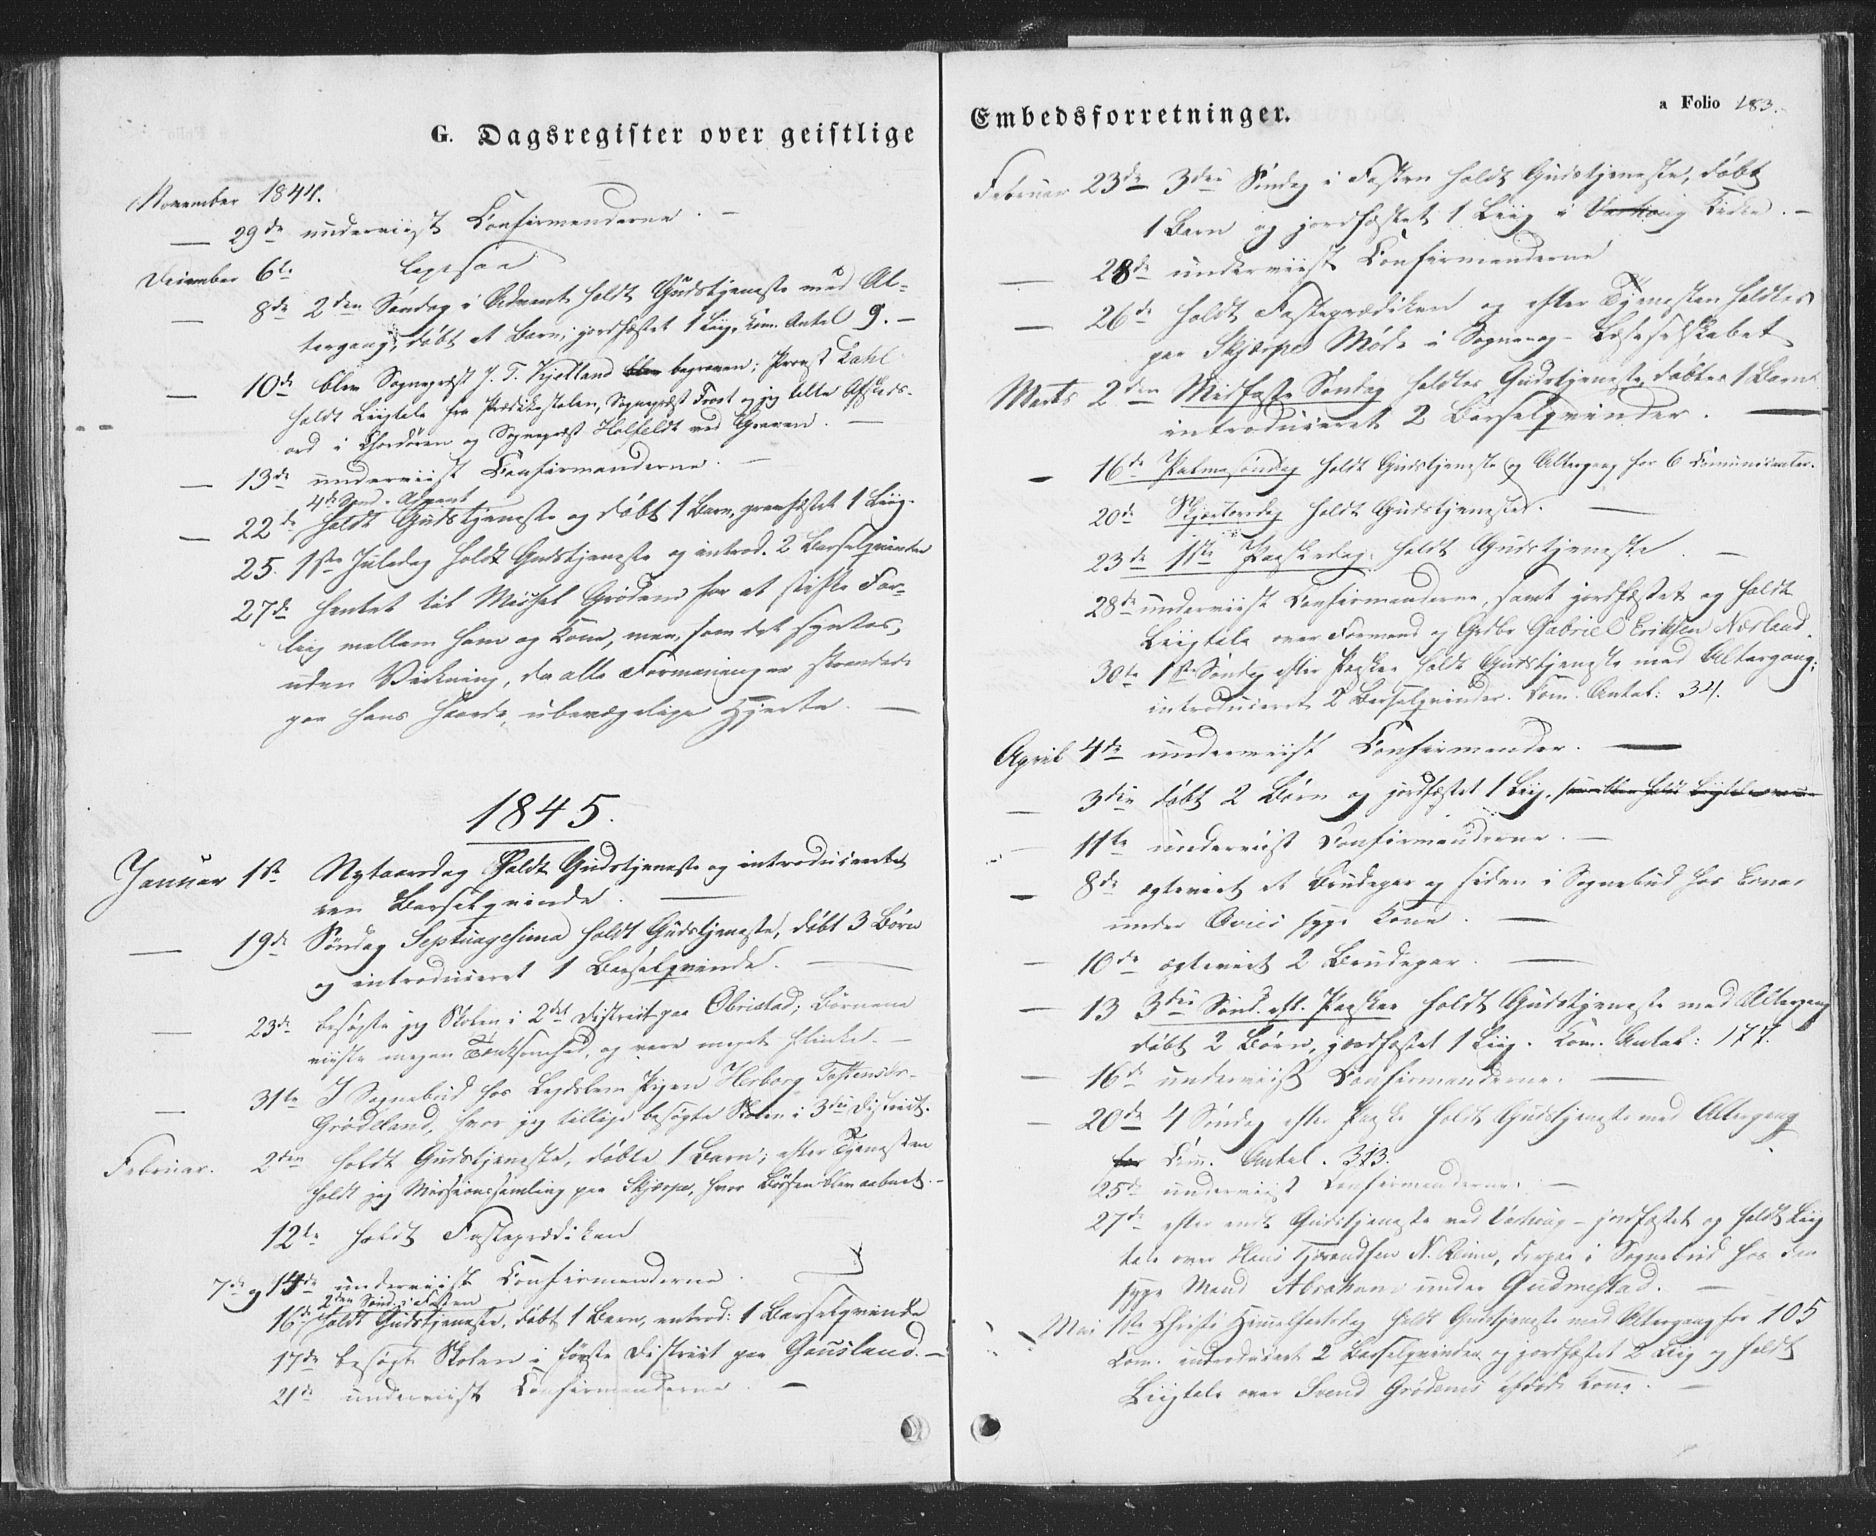 G. Dagsregister over geistlige
November 1844.
— 29de underviist Confirmanderne. —
December 6te ligesaa
— 8de 2den Søndag i Advent holdt Gudstjeneste med Al-
tergang, døbt et Barn, jordfæstet 1 Liig, Com. Antal 9. —
— 10de blev Sognepræst J. T. Kjelland blev begraven; Provst Dahl
holdt Liigtale fra Prædikestolen, Sognepræst Frost og jeg talte Afskeds-
ord i Chordøren og Sognepræst Holfeldt ved Graven. —
— 13de underviist Confirmanderne. —
4de Sønd. i Advent
— 22de holdt Gudstjeneste og døbt 1 Barn, jordfæstet 1 Liig.
25. 1ste Juledag holdt Gudstjeneste og introd. 2 Barselqvinder
27de hentet til Michel Grødem for at stifte For-
lig mellem ham og Kone, men, som det syntes,
uden Virkning, da alle Formaninger strandede
paa hans haarde, ubevægelige Hjerte. —
1845.
Januar 1ste Nytaarsdag holdt Gudstjeneste og introduceerte
een Barselqvinde. —
— 19de Søndag Septuagesima holdt Gudstjeneste, døbt 3 Børn
og introduceret 1 Barselqvinde. —
— 23de besøgte jeg Skolen i 2det District paa Obrestad; Børnene
viiste megen Tænksomhed, og vare meget flinke. —
— 31te I Sognebud hos Pigen Herborg Tostensdr.
Grødeland, hvor jeg tillige besøgte Skolen i 3die District.
Februar. 2den holdt Gudstjeneste, døbte 1 Barn; efter Tjenesten
holdt jeg Missionssamling paa Skjærpe, hvor Bøssen blev aabnet. —
12te holdt Fasteprædiken
7de og 14de underviist Confirmanderne.
2den Sønd. i Fasten
16de holdt Gudstjeneste, døbt 1 Barn, introd: 1 Barselqvinde
17de besøgt Skolen i første District paa Gausland. —
21de underviist Confirmanderne. —
Embedsforretninger.
a Folio 183.
Februar 23de 3die Søndag i Fasten holdt Gudstjeneste, døbt
1 Barn og jordfæstet 1 Liig i Varhoug Kirke. —
— 28de underviist Confirmanderne
— 26de holdt Fasteprædiken og efter Tjenesten holdtes
paa Skjærpe Møde i Sogne og Læseselskabet
Marts 2den Midfaste Søndag holdtes Gudstjeneste, døbtes 1 Barn
introduceret 2 Barselqvinder. —
— 16de Palmesøndag holdt Gudstjeneste og Altergang for 6 Communicanter.
20de Skjærtorsdag holdt Gudstjeneste. —
23de 1ste Paaskedag: holdt Gudstjeneste. —
28de underviist Confirmanderne, samt jordfæstet og holdt
Liigtale over Formand og Gaardbr Gabriel Eriksen Nærland.
30te 1ste Søndag efter Paaske, holdt Gudstjeneste med Altergang;
introduceret 2 Barselqvinder. Com. Antal: 34.
April 4de underviist Confirmander. —
— 3die døbt 2 Børn og jordfæstet 1 Liig,
— 11te underviist Confirmanderne. —
— 8de ægteviet et Brudepar og siden i Sognebud hos
under syge Kone. —
— 10de ægteviet 2 Brudepar. —
— 13 3die Sønd. eft. Paaske holdt Gudstjeneste med Altergang
døbt 2 Børn, jordfæstet 1 Liig. Com. Antal: 177.
— 16de underviist Confirmanderne. —
— 20de 4 Søndag efter Paaske holdt Gudstjeneste med Altergang
for Com. Antal. 313.
25de underviist Confirmanderne. —
27de efter endt Gudstjeneste ved Varhoug – jordfæstet og holdt Liig
tale over N. Reime, derpaa i Sognebud hos den
syge Mand Abraham under Gudmestad. —
Mai 1ste Christi Himmelfartsdag holdt Gudstjeneste med Altergang for 105
Com. introduceert 2 Barselqvinder og jordfæstet 2 Liig og holdt
Liigtale over Svend Grødems afdøde Kone. —